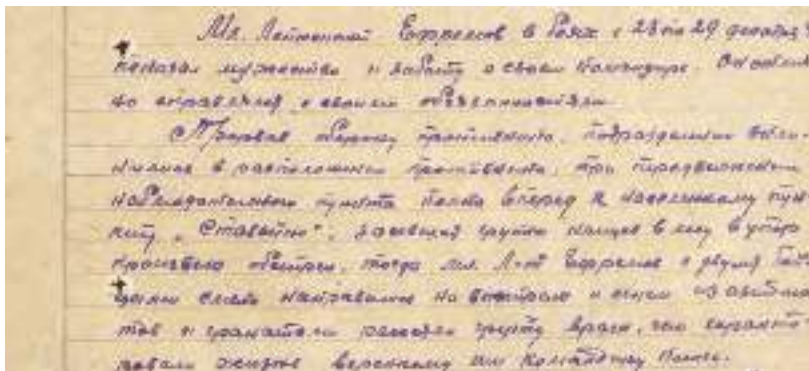 Мл. Лейтенант Ефремов в боях с 28 по 29 декабря
показал мужество и заботу о своем командире. Он отлич-
но справлялся с своими обязанностями.
Прорвав оборону противника, подразделения вкли-
нились в расположение противника, при передвижении
наблюдательного пункта полка вперед к населенному пун-
кту „Ставитно", засевшая группа немцев в лесу в упор
произвела обстрел, тогда мл. л-т Ефремов с двумя бой-
цами смело направился на выстрелы и огнем из автома-
тов и гранатами рассеял группу врага, чем гаранти-
ровали жизнь вверенному им командиру полка.